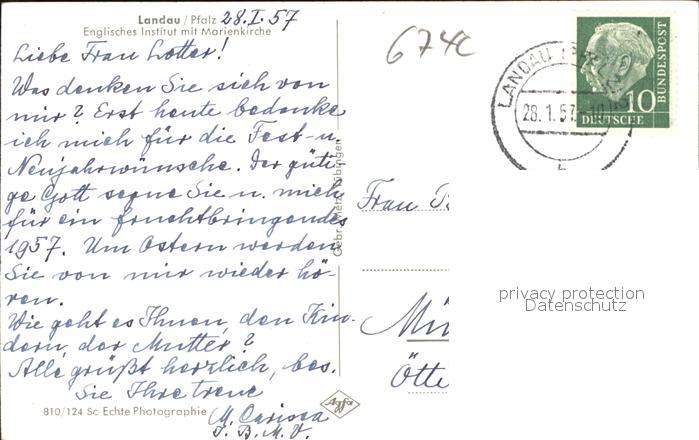 Landau / Pfalz 28.I.57
Englisches Institut mit Marienkirche
Liebe Frau Lotter!
Was denken Sie sich von
mir? Erst heute bedanke
ich mich für die Fest- u.
Neujahrwünsche. Der güti-
ge Gott segne Sie u. mich
für ein fruchtbringendes
1957. Um Ostern werden
Sie von mir wieder hö-
ren.
Wie geht es Ihnen, den Kin-
dern, der Mutter?
Alle grüßt herzlich, bes.
Sie Ihre treue
M. Carissa
I. B. M. V.
810/124 Sc Echte Photographie
Agfa
Gebr. Metz, Tübingen
674c
LANDAU (PFALZ)
28.1.57
10
DEUTSCHE
BUNDESPOST
Frau
privacy protection
Datenschutz